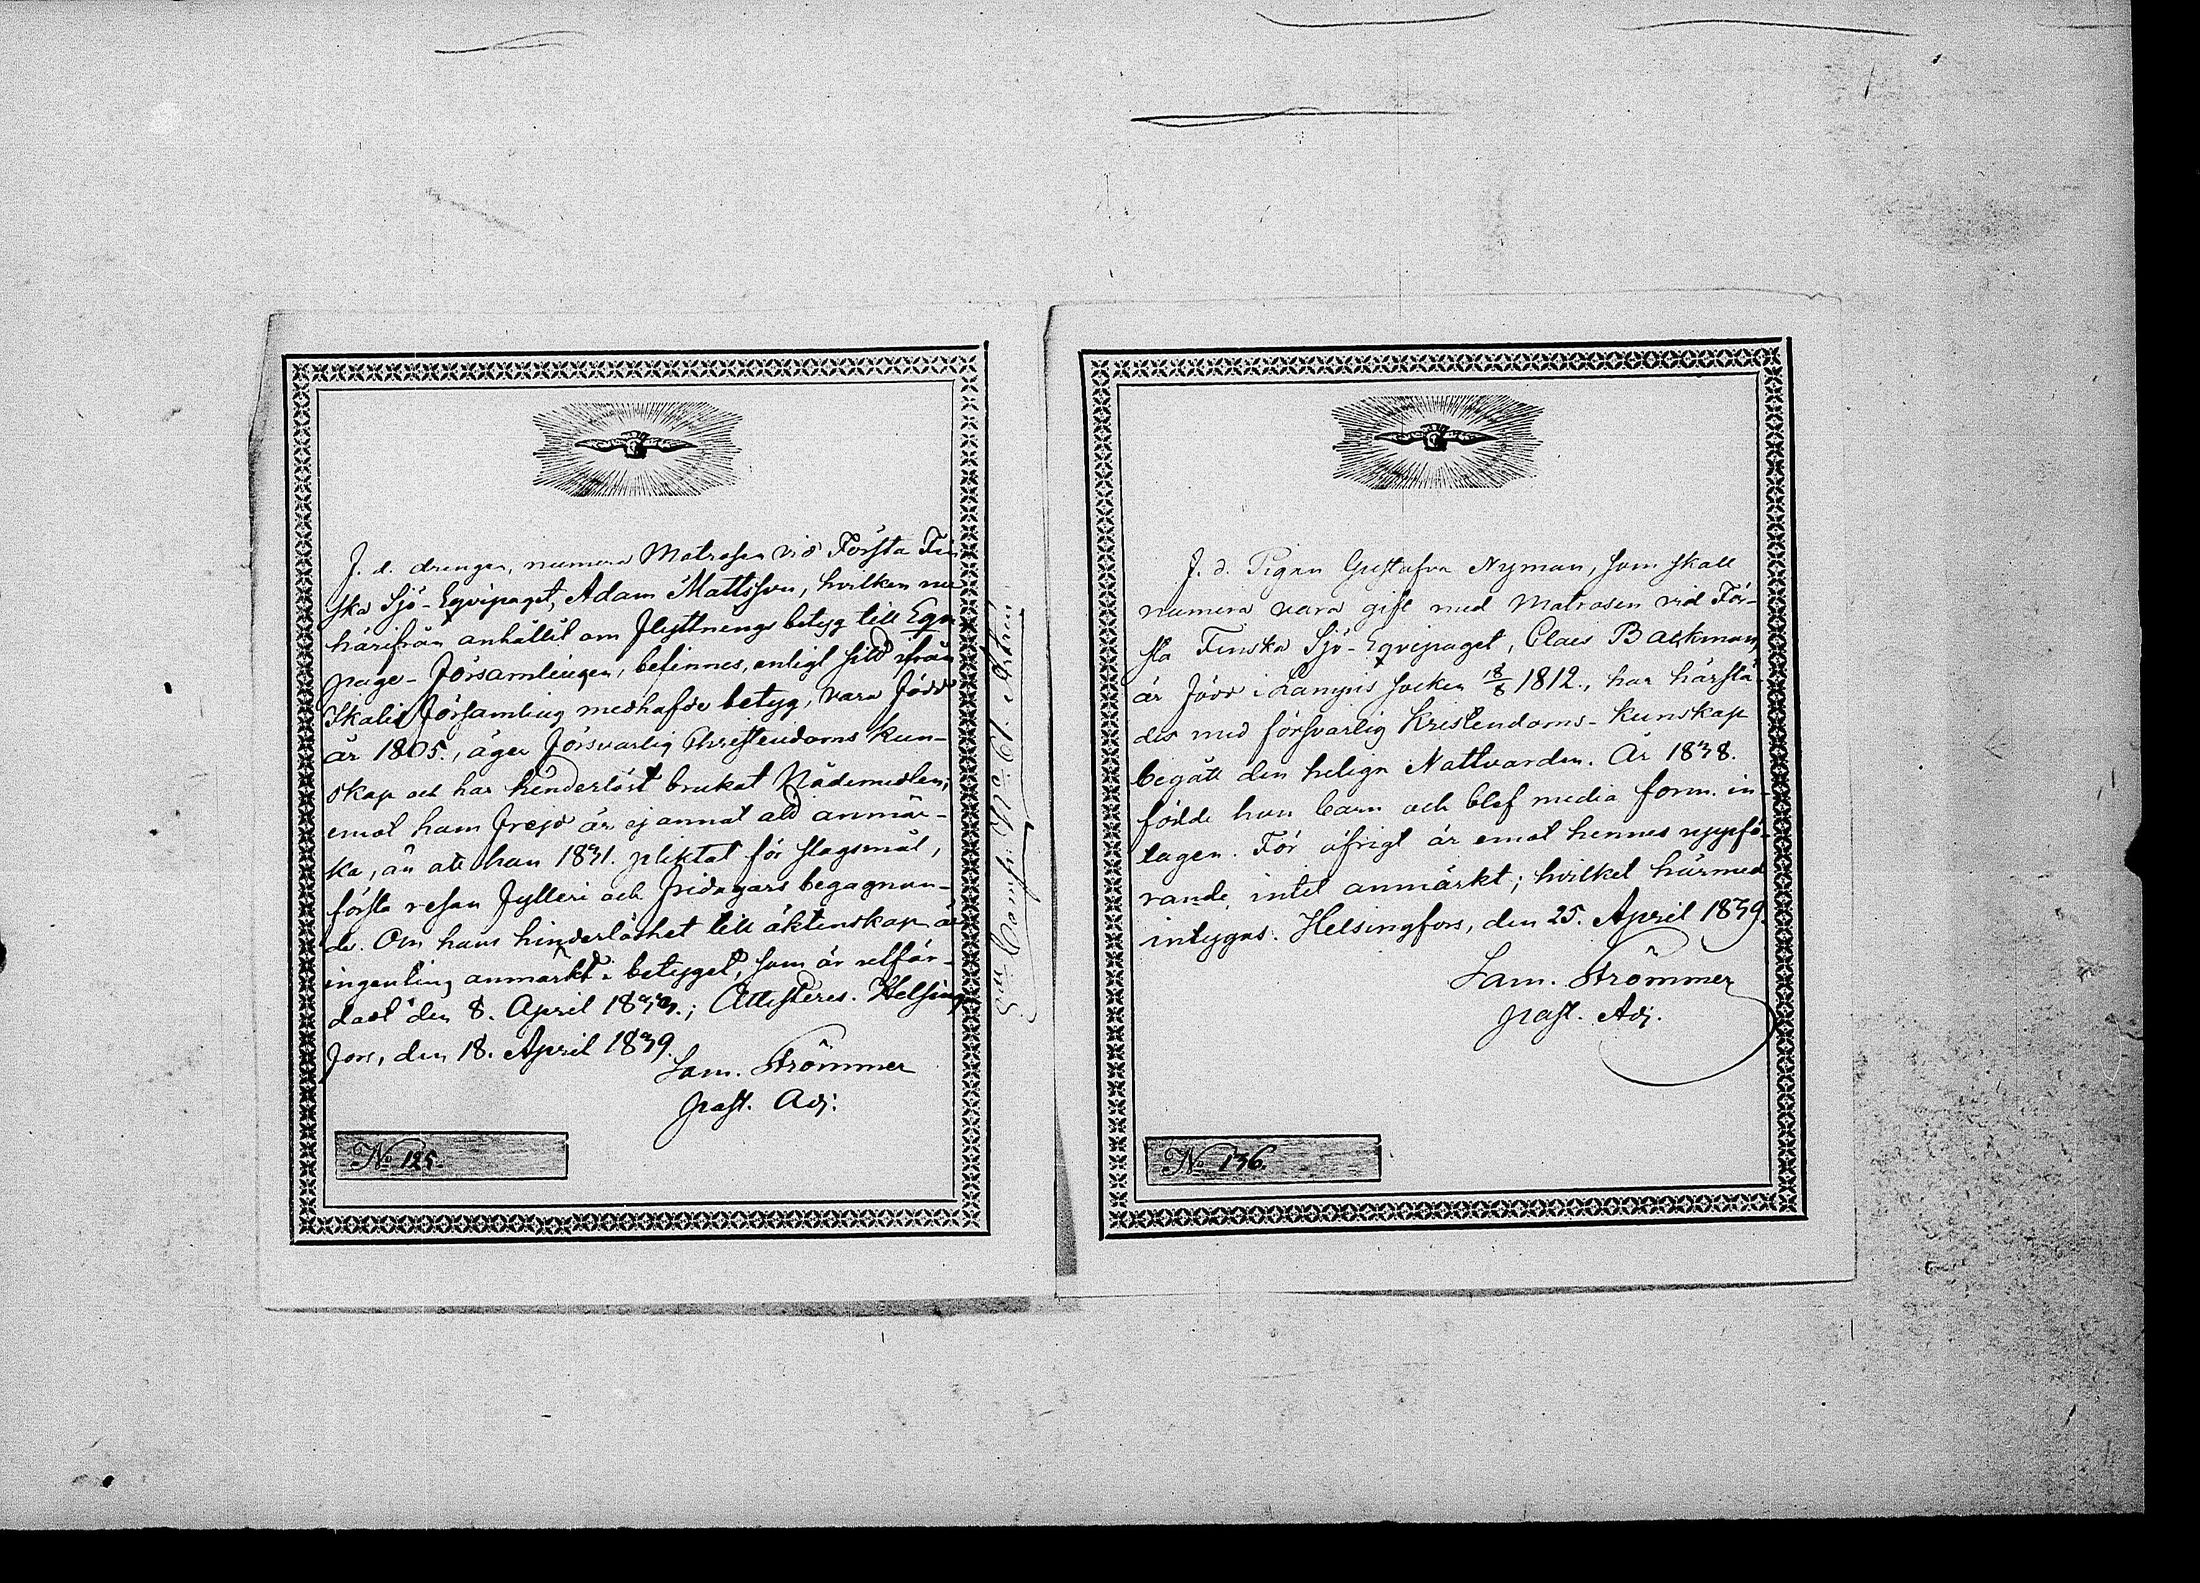 F. d. drengen, numera Matrosen vid Första Fin
ska Sjö-Eqvipaget, Adam Mattsson, hvilken nu
härifrån anhållit om flyttnings betyg till Eqvi
page-Församlingen, befinnes, enligt sitt ifrån
församling medhafde betyg, vara född
år 1805., äger försvarlig Christendoms kun-
skap och har hinderlöst brukat Nådemedlen;
emot hans frejd är ej annat att anmär-
ka, än att han 1831. pliktat för slagsmål,
första resan fylleri och fridagars begagnan-
de. Om hans hinderlöshet till äktenskap är
ingenting anmärkt i betyget, som är utfär-
dadt den 8. April 1839.; Attesteres. Helsing
fors, den 18. April 1839.
Sam. Strömmer
past. Adj.
No 125.
F. d. Pigan Gustafva Nyman, som skall
numera vara gift med Matrosen vid För-
sta Finska Sjö-Eqvipaget, Claes Backman,
är född i Lampis socken 18/8 1812., har härstä-
des med försvarlig Kristendoms-kunskap
begått den heliga Nattvarden. År 1838.
födde hon barn och blef media form. in-
tagen. För öfrigt är emot hennes uppfö-
rande, intet anmärkt; hvilket härmed
intygas. Helsingfors, den 25. April 1839.
Sam. Strömmer
past. Adj.
No 136.